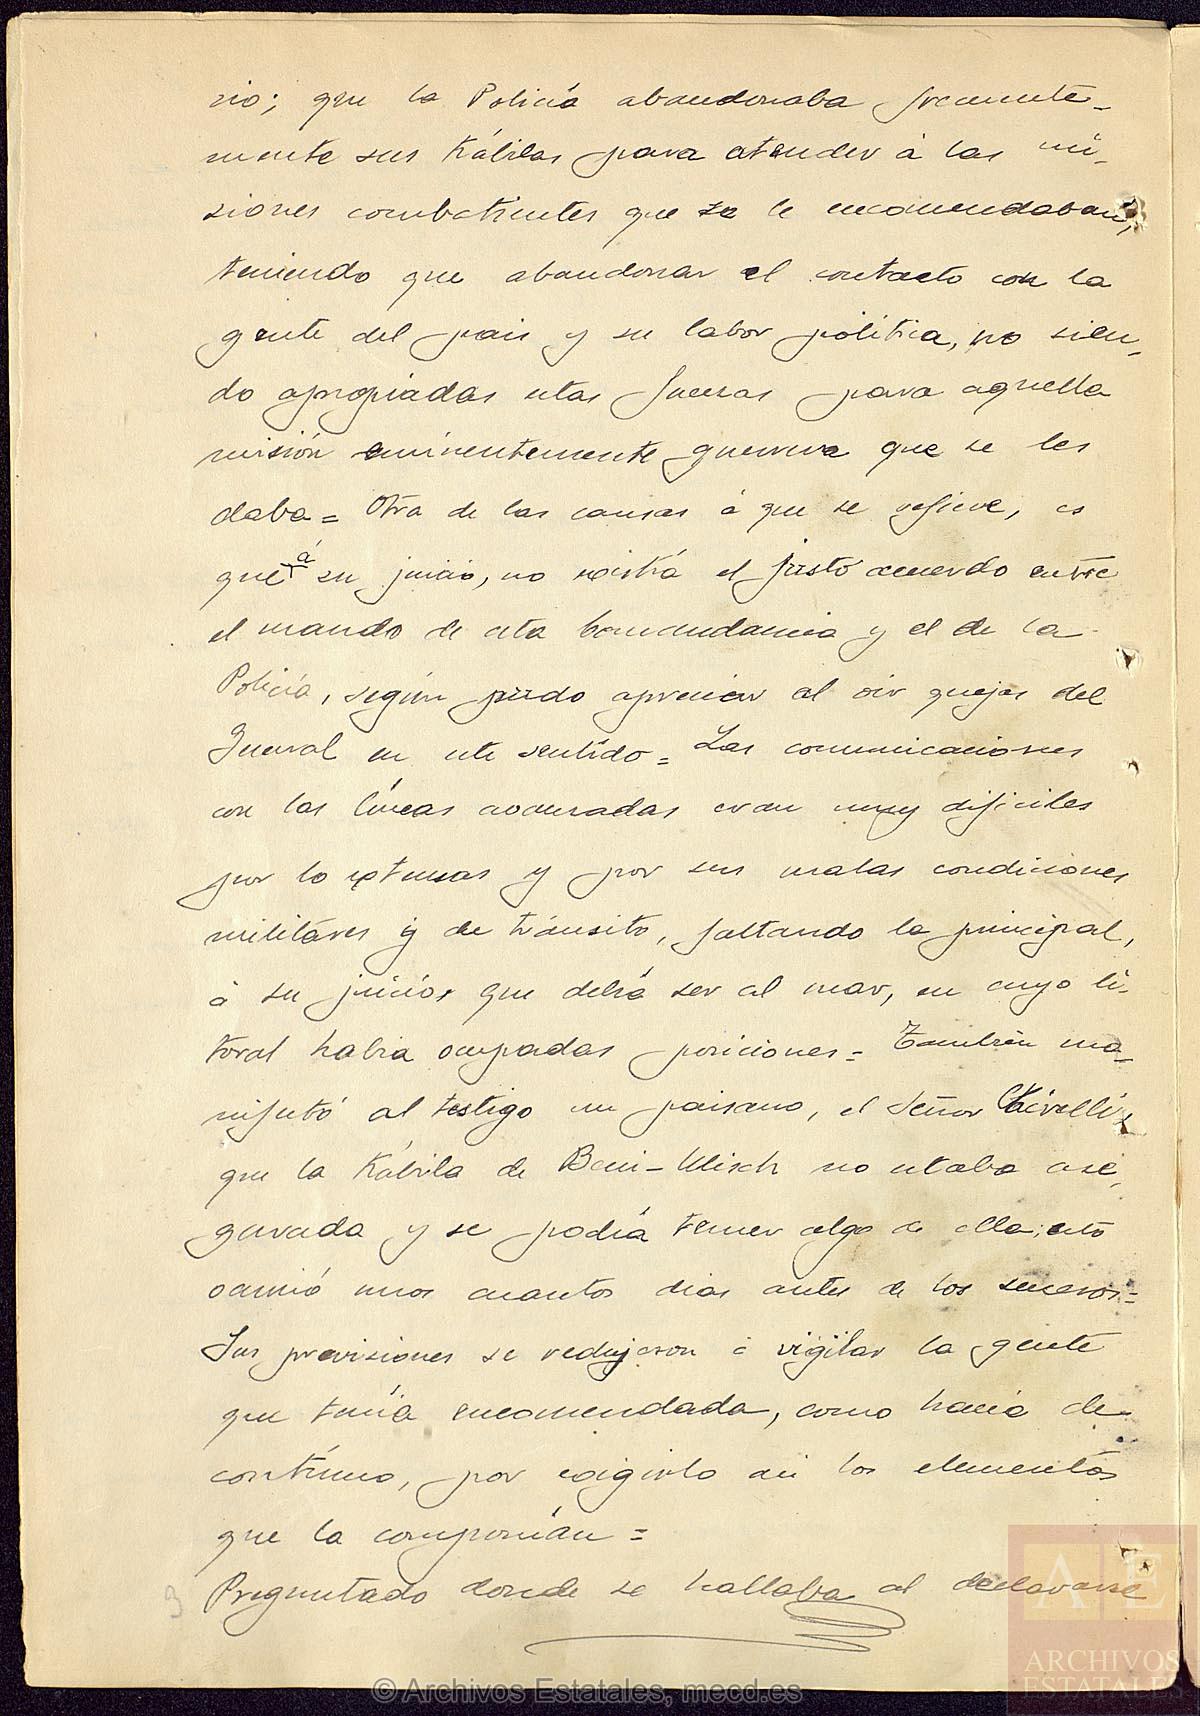 rio; que la Policía abandonaba frecuente-
mente sus Kábilas para atender á las mi-
siones combatientes que se le encomendaban,
teniendo que abandonar el contacto con la
gente del pais y su labor política, no sien-
do apropiadas estas fuerzas para aquella
misión eminentemente guerrera que se les
daba = Otra de las causas á que se refiere, es
que á su juicio, no existía el justo acuerdo entre
el mando de esta Comandancia y el de la
Policía, según pudo apreciar al oir quejas del
General en este sentido = Las comunicaciones
con las líneas avanzadas eran muy dificiles
por lo extensas y por sus malas condiciones
militares y de tránsito, faltando la principal,
á su juicio, que debía ser al mar, en cuyo li-
toral habia ocupadas posiciones = Tambien ma-
nifestó al testigo un paisano, el Señor
que la Kábila de Beni-Ulisch no estaba ase-
gurada y se podía temer algo de ella; esto
ocurrió unos cuantos dias antes de los sucesos =
Sus previsiones se redujeron á vigilar la gente
que tenía encomendada, como hacía de
contínuo, por exigirlo asi los elementos
que la componían =
Preguntado donde se hallaba al declararse
3
AE
ARCHIVOS
ESTATALES
© Archivos Estatales, mecd.es